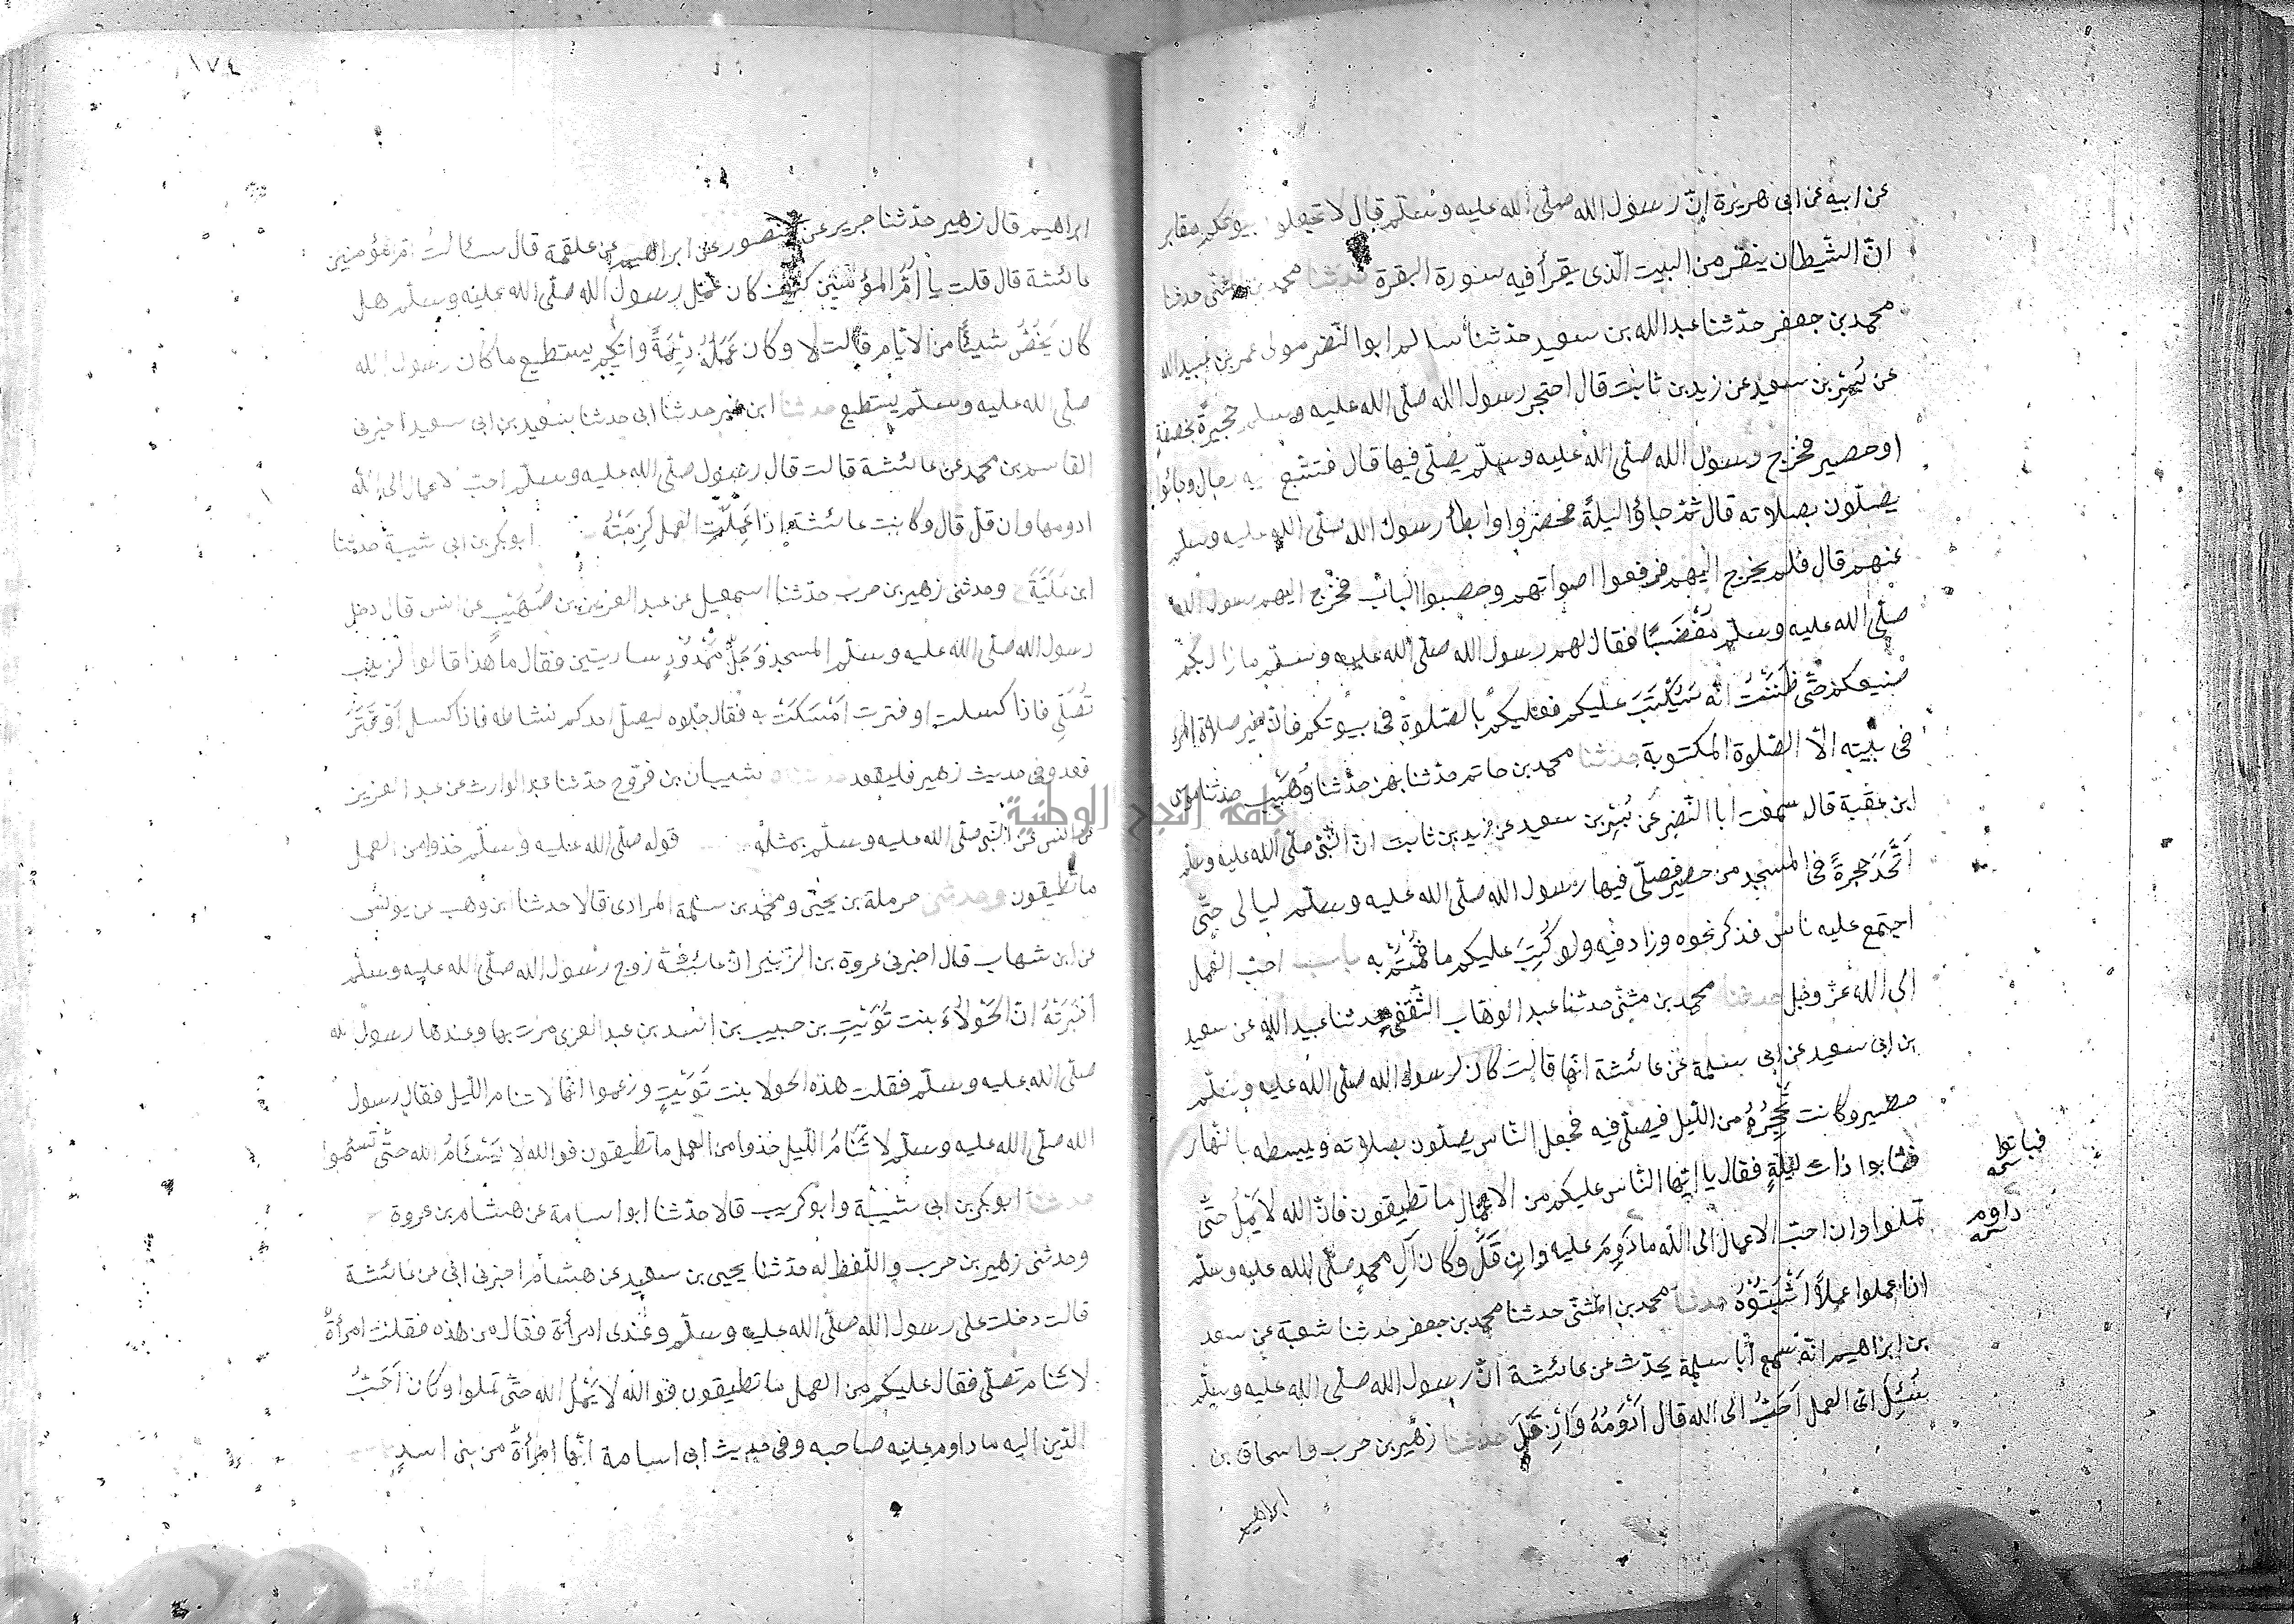 عن ابيه عن ابى هريرة انّ رسول الله صلّى الله عليه وسلّم قال لا تجعلوا بيوتكم مقابر
انّ الشّيطان ينفر من البيت الّذى يقرأ فيه سورة البقرة حدثنا محمد بن المثنى حدثنا
محمد بن جعفر حدّثنا عبد الله بن سعيد حدّثنا سالم ابو النّضر مولى عمر بن عبيد الله
عن بُسْرِ بن سعيد عن زيد بن ثابت قال احتجر رسول الله صلّى الله عليه وسلم حجيرةً بخصفةٍ
او حصير فخرج رسول الله صلّى الله عليه وسلّم يصلّى فيها قال فتتبّع اليه رجال وجاؤا
يصلّون بصلاته قال ثمّ جاؤا ليلةً فحضروا وابطأ رسول الله صلّى الله عليه وسلم
عنهم قال فلم يخرج اليهم فرفعوا اصواتهم وحصبوا الباب فخرج اليهم رسول الله
صلّى الله عليه وسلّم مُغْضَبًا فقال لهم رسول الله صلّى الله عليه وسلّم ما زال بكم
صنيعكم حتّى ظَنَنْتُ انّه سَيُكْتَبَ عليكم فعليكم بالصّلوة فى بيوتكم فانّ خير صلاة المرء
فى بيته الّا الصّلوة المكتوبة حدثنا محمد بن حاتم حدّثنا بهز حدّثنا وُهَيْب حدّثنا موسى
ابن عقبة قال سمعت ابا النّضر عن بُسْرِ بن سعيد عن زيد بن ثابت انّ النّبىّ صلّى الله عليه وسلّم
اتّخذ حجرةً فى المسجد من حصير فصلّى فيها رسول الله صلّى الله عليه وسلّم ليالى حتّى
اجتمع عليه ناس فذكر نحوه وزاد فيه ولو كُتِبَ عليكم ما قُمْتُمْ به باب احبّ العمل
الى الله عزّ وجل حدثنا محمد بن مثنّى حدثنا عبد الوهّاب الثّقفى حدثنا عبيد الله عن سعيد
بن ابى سعيد عن ابى سلمة عن عائشة انّها قالت كان لرسول الله صلّى الله عليه وسلّم
حصير وكانت يُحَجِّرُهُ من اللّيل فيصلّى فيه فجعل النّاس يصلّون بصلاته ويبسطه بالنّهار
فثابوا ذات ليلةٍ فقال يا ايّها النّاس عليكم من الاعمال ما تطيقون فانّ الله لا يَمَلُّ حتّى
تملوا وان احبّ الاعمال الى الله ما دُوِمَ عليه وان قَلَّ وكان آل محمدٍ صلّى الله عليه وسلّم
اذا عملوا عملًا اَثْبَتُوْهُ حدثنا محمد بن المثنّى حدثنا محمد بن جعفر حدثنا شعبة عن سعد
بن ابراهيم انّه سمع ابا سلمة يحدّث عن عائشة انّ رسول الله صلّى الله عليه وسلّم
سُئِلَ اىّ العمل اَحَبُّ الى الله قال اَدْوَمُهُ وَاِنْ قَلَّ حدثنا زهير بن حرب واسحاق بن
ابراهيم
فباتوا
داوم
١٧٤
ابراهيم قال زهير حدّثنا جرير عن منصور عن ابراهيم عن علقمة قال سئالت ام المؤمنين
عائشة قال قلت يا اُمَّ المؤمنين كيف كان عمل رسول الله صلّى الله عليه وسلّم هل
كان يَخُصُّ شيئًا من الايّام قالت لا وكان عَمَلُهُ دِيْمَةً وايّكم يستطيع ما كان رسول الله
صلّى الله عليه وسلّم يستطيع حدثنا ابن نمير حدثنا ابى حدثنا سعيد بن ابى سعيد اخبرنى
القاسم بن محمد عن عائشة قالت قال رسول صلّى الله عليه وسلّم احبّ الاعمال الى الله
ادومها وان قلّ قال وكانت عائشة اذا عَمِلَتِ العمل لَزِمَتْهُ ابو بكر بن ابى شيبة حدثنا
ابن عُلَيَّةَ ح وحدثنى زهير بن حرب حدّثنا اسمعيل عن عبد العزيز بن صُهَيْب عن انس قال دخل
رسول الله صلّى الله عليه وسلّم المسجد وَحَبْلٌ مَمْدُوْدٌ ساريتين فقال ما هذا قالوا لزينب
تُصَلِّى فاذا كسلت او فترت اَمْسَكَتْ به فقال حلّوه ليصلّ احدكم نشاطه فاذا كسل اَوْ فَتَرَ
قعد وفى حديث زهير فليقعد حدثناه شيبان بن فرّوخ حدّثنا عبد الوارث عن عبد العزيز
عن انس عن النّبى صلّى الله عليه وسلّم بمثله قوله صلّى الله عليه وسلّم خذوا من العمل
ما تطيقون وحدثنى حرملة بن يحيى ومحمد بن سلمة المرادى قالا حدثنا ابن وهب عن يونس
عن ابن شهاب قال اخبرنى عروة بن الزّبير انّ عائشة زوج رسول الله صلّى الله عليه وسلّم
اَخْبَرَتْهُ انّ الحَوْلَاءَ بنت تُوَيْتِ بن حبيب بن اسد بن عبد العزى مرّت بها وعندها رسول الله
صلّى الله عليه وسلّم فقلت هذه الحولا بنت تُوَيْتٍ وزعموا انّها لا تنام اللّيل فقال رسول
الله صلّى الله عليه وسلّم لا تَنَامُ اللّيل خذوا من العمل ما تطيقون فو الله لا يَسْئَامُ الله حتّى تسئموا
حدثنا ابو بكر بن ابى شيبة وابو كريب قالا حدّثنا ابو اسامة عن هشام بن عروة
وحدثنى زهير بن حرب واللّفظ له حدّثنا يحيى بن سعيد عن هشام اخبرنى ابى عن عائشة
قالت دخلت على رسول الله صلّى الله عليه وسلّم وعندى امرأة فقال من هذه فقلت امرأةٌ
لا تنام تصلّى فقال عليكم من العمل ما تطيقون فو الله لا يَمَلُّ الله حتّى تملوا وكان اَحَبُّ
الدّين اليه ما داوم عليه صاحبه وفى حديث ابى اسامة انّها امرأةٌ من بنى اسدٍ
جامعة النجاح الوطنية